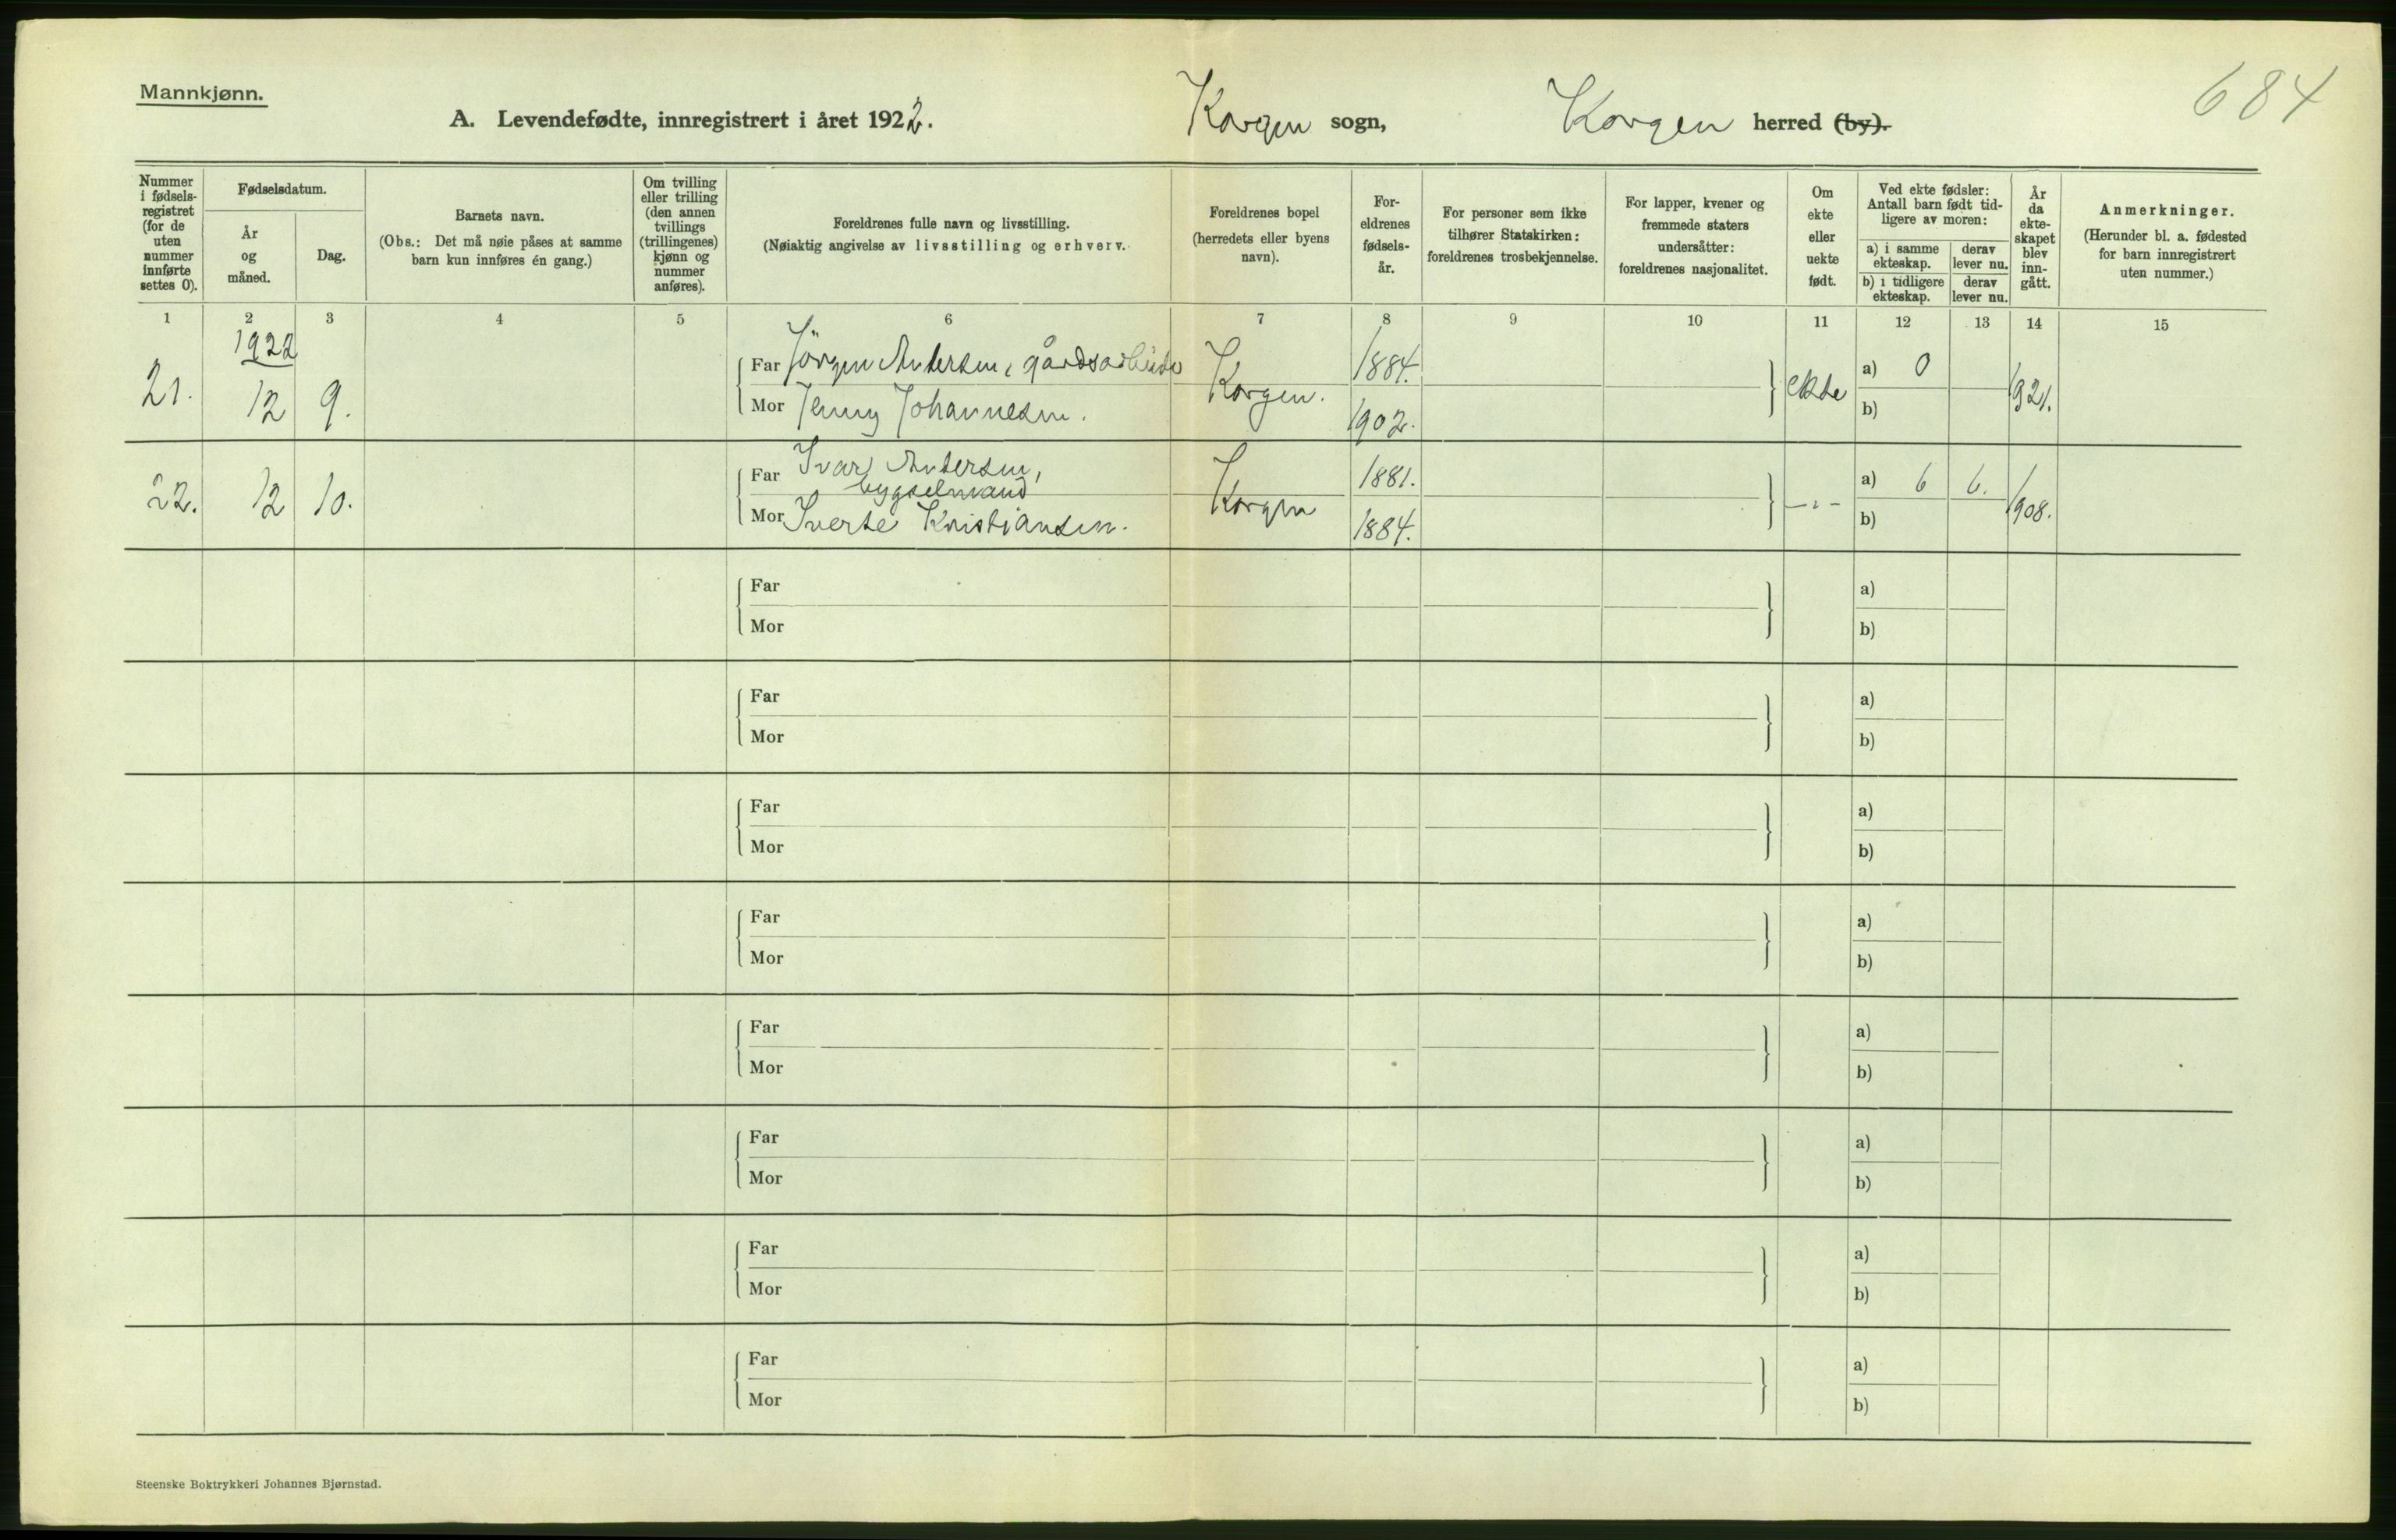 Mannkjønn.
684
A. Levendefødte, innregistrert i året 1922. Korgen sogn, Korgen herred (by).
Nummer i fødselsregistret (for de uten nummer innførte settes 0).
Fødselsdatum.
År og måned.
Dag.
Barnets navn.
(Obs.: Det må nøie påses at samme barn kun innføres én gang.)
Om tvilling eller trilling (den annen tvillings (trillingenes) kjønn og nummer anføres).
Foreldrenes fulle navn og livsstilling.
(Nøiaktig angivelse av livsstilling og erhverv.
Foreldrenes bopel (herredets eller byens navn).
Foreldrenes fødselsår.
For personer som ikke tilhører Statskirken: foreldrenes trosbekjennelse.
For lapper, kvener og fremmede staters undersåtter: foreldrenes nasjonalitet.
Om ekte eller uekte født.
Ved ekte fødsler: Antall barn født tidligere av moren:
a) i samme ekteskap.
derav lever nu.
b) i tidligere ekteskap.
derav lever nu.
År da ekteskapet blev inngått.
Anmerkninger.
(Herunder bl. a. fødested for barn innregistrert uten nummer.)
1 2 3 4 5 6 7 8 9 10 11 12 13 14 15
1922
21. 12 9. Far Jörgen Andersen, gårdsarbeide Korgen. 1884. ekte a) 0 1921.
Mor Jenny Johannesen. 1902. b)
22. 12 10. Far Ivar Andersen, bygselmand Korgen 1881. -"- a) 6 6. 1908.
Mor Sverte Kristiansen. 1884. b)
Far a)
Mor b)
Far a)
Mor b)
Far a)
Mor b)
Far a)
Mor b)
Far a)
Mor b)
Far a)
Mor b)
Far a)
Mor b)
Far a)
Mor b)
Steenske Boktrykkeri Johannes Bjørnstad.